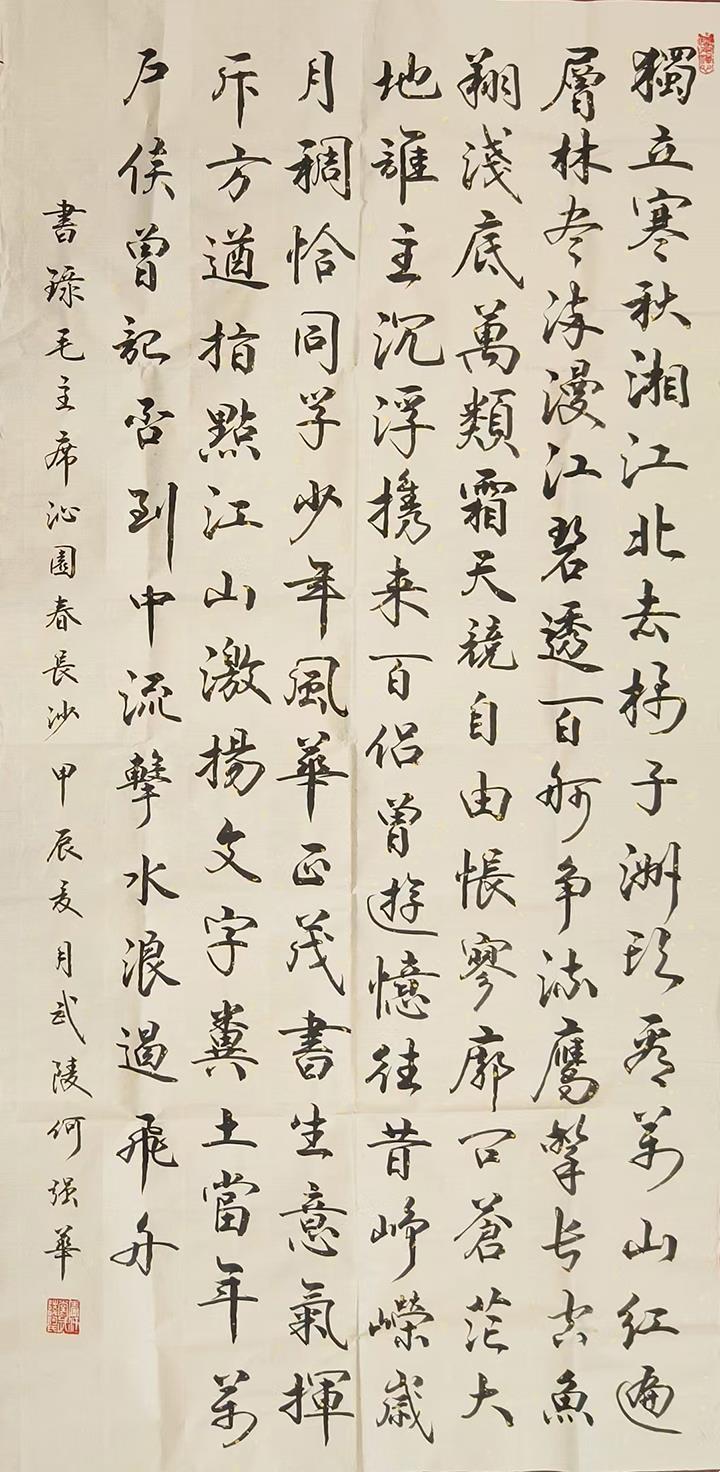 獨立寒秋湘江北去橘子洲頭看萬山紅遍
層林盡染漫江碧透百舸争流鷹擊长空魚
翔淺底萬類霜天競自由悵寥廓問蒼茫大
地誰主沉浮携来百侣曾遊憶往昔崢嶸歲
月稠恰同学少年風華正茂書生意氣揮
斥方遒指點江山激揚文字糞土當年萬
户侯曾記否到中流擊水浪遏飛舟
書録毛主席沁園春長沙甲辰夏月武陵何强華